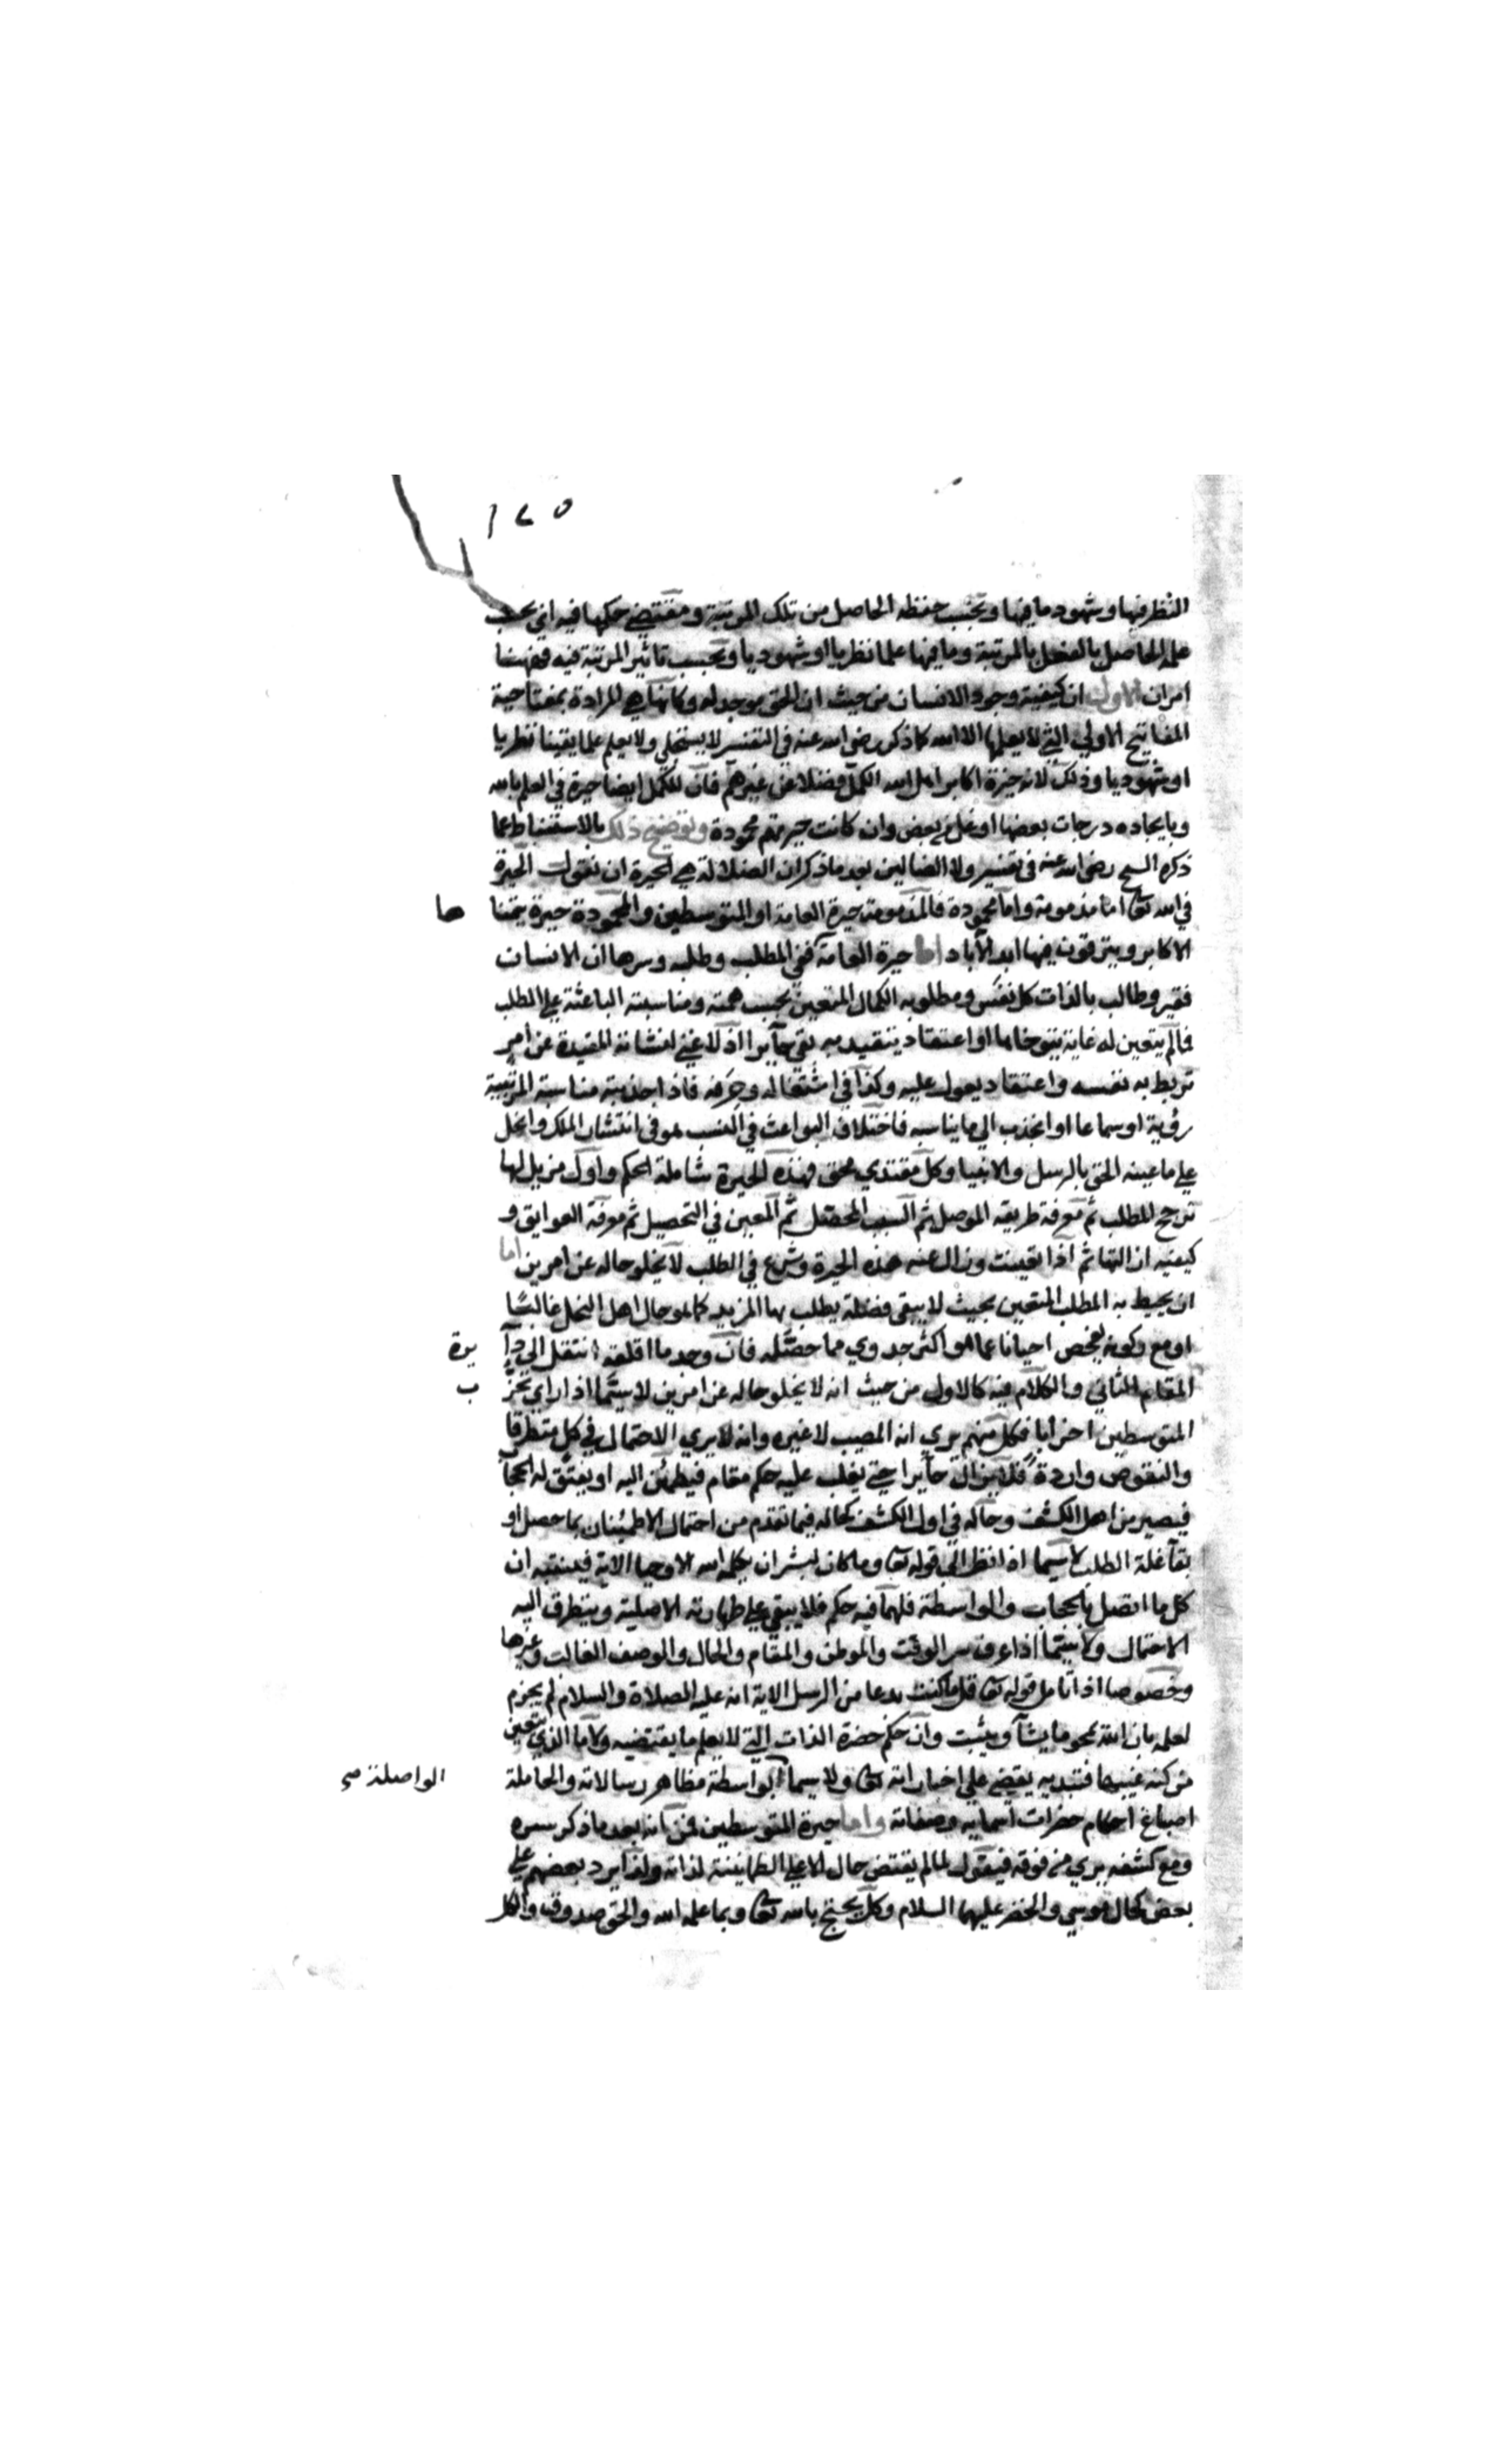 ١٤٥
النظر فيها وشهود ما فيها وبحسب حفظه الحاصل من تلك المرتبة ومقتضى حكمها فيه اي بحسب
علمه الحاصل بالفعل بالمرتبة وما فيها علما نظريا او شهوديا وبحسب تاثير المرتبة فيه فههنا
امران الاول ان كيفية وجود الانسان من حيث ان الحق موجد له وكانها هي المرادة بمفتاحية
المفاتيح الاولي التي لا يعلمها الا الله كما ذكر رضي الله عنه في التفسير لا يستجلي ولا يعلم علما يقينا نظريا
او شهوديا وذلك لانه حيرة اكابر اهل الله الكمل فضلا عن غيرهم فان للكمل ايضا حيرة في العلم بالله
وبايجاده درجات بعضها اوغل من بعض وان كانت حيرتهم محمودة وتوضيح ذلك بالاستنباط عما
ذكره الشيخ رضي الله عنه في تفسير ولا الضالين بعد ما ذكر ان الضلالة هي الحيرة ان نقول الحيرة
في الله تعا اما مذمومة واما محمودة فالمذمومة حيرة العامة او المتوسطين والمحمودة حيرة يتمنا ها
الاكابر ويترقون فيها ابد الآباد اما حيرة العامة ففي المطلب وطلبه وسرها ان الانسان
فقير وطالب بالذات كل نفس ومطلوبه الكمال المتعين بحسب همته ومناسبته الباعثة علي المطلب
فما لم يتعين له غاية يتوخاها او اعتقاد يتقيد به بقي حآيرا اذ لا غني لنشاته المقيدة عن امر
تربط به نفسه واعتقاد يعول عليه وكذا في اشتغاله وحرفه فاذا جذبته مناسبة المرتبية
رؤية او سماعا او انجذب الي ما يناسبه فاختلاف البواعث في النسب هو في انتشار الملك والنحل
علي ما عينه الحق بالرسل والانبيا وكل مقتدي محق فهذه الحيرة شاملة الحكم واول مزيل لها
ترجح المطلب ثم معرفة طريقه الموصل ثم السبب المحصل ثم المعين في التحصيل ثم معرفة العوايق و
كيفيه ازالتها ثم اذا تعينت وزال عنه هذه الحيرة وشرع في الطلب لا يخلو حاله عن امرين اما
ان يحيط به المطلب المتعين بحيث لا يبقي فضلة يطلب بها المزيد كما هو حال اهل النحل غالبًا
او مع ركونه يفحص احيانا عما هو اكثر جدوي مما حصله فان وجد ما اقلقه انتقل الي دآ يرة
المقام الثاني والكلام فيه كالاول من حيث انه لا يخلو حاله عن امرين لا سيما اذا راي تحز ب
المتوسطين احزابا فكل منهم يري انه المصيب لا غيره وانه لا يري الاحتمال في كل متطرقا
والنقوض واردة فلا يزال حآيرا حتي يغلب عليه حكم مقام فيطمئن اليه او ينفتق له الحجا
فيصير من اهل الكشف وحاله في اول الكشف كحاله فيما تقدم من احتمال الاطمئنان بما حصل او
بقآ غلة الطلب لا سيما اذا نظر الي قوله تعا وما كان لبشر ان يكلمه الله الا وحيا الاية فيتنبه ان
كل ما اتصل بالحجاب والواسطة فلهما فيه حكم فلا يبقي علي طهارته الاصلية ويتطرق اليه
الاحتمال ولا سيما اذا عرف سر الوقت والموطن والمقام والحال والوصف الغالب وغيرها
وخصوصا اذا تامل قوله تعا قل ما كنت بدعا من الرسل الاية انه عليه الصلاة والسلام لم يجزم
لعلمه بان الله يمحو ما يشآ ويثبت وان حكم حضرة الذات التي لا يعلم ما يقتضيه ولا ما الذي يتعين
من كنه غيبها فتبديه يقضي علي اخباراته تعا ولا سيما الواصلة صح بواسطة مظاهر رسالاته والحاملة
اصباغ احكام حضرات اسمايه وصفاته واما حيرة المتوسطين فمن انه بعد ما ذكر سره
ومع كشفه يري من فوقه فيقول لما لم يقتض حال الاعلي الطمانينة لذاته ولذا يرد بعضهم علي
بعض كحال موسي والخضر عليهما السلام وكل يحتج بالله تعا وبما علمه الله والحق صدوق والكل